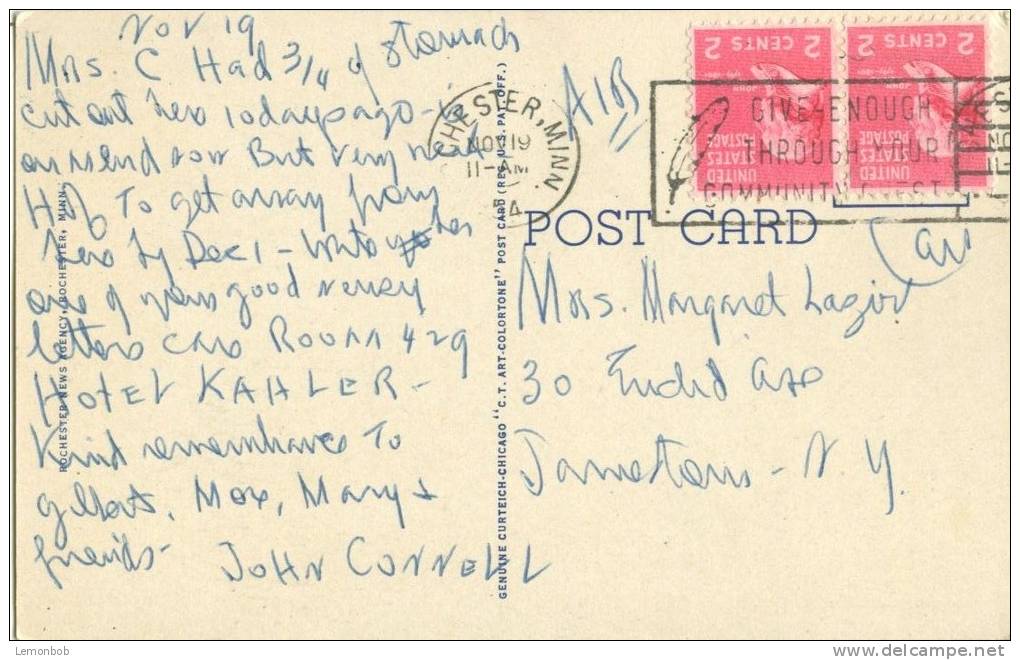 Nov 19
Mrs. C Had 3/4 of Stomach
cut out here 10 days ago -
on mend now But very weak
Hope To get away from
here by Dec 1 - Write her
one of your good newsy
letters care Room 429
HOTEL KAHLER -
Kind remembrance To
Gilberts, Max, Mary +
friends -
JOHN CONNELL
ROCHESTER NEWS AGENCY, ROCHESTER, MINN.
GENUINE CURTEICH-CHICAGO "C.T. ART-COLORTONE" POST CARD (REG. U.S. PAT. OFF.)
AIR
CHESTER, MINN.
NOV 19
11-AM
54
GIVE-ENOUGH
THROUGH YOUR
COMMUNITY CHEST
2 CENTS 2
UNITED
STATES
POSTAGE
2 CENTS 2
UNITED
STATES
POSTAGE
POST CARD
air
Mrs. Margaret Lazier
30 Euclid Ave
Jamestown - N.Y.
Lemonbob
delcampe.net